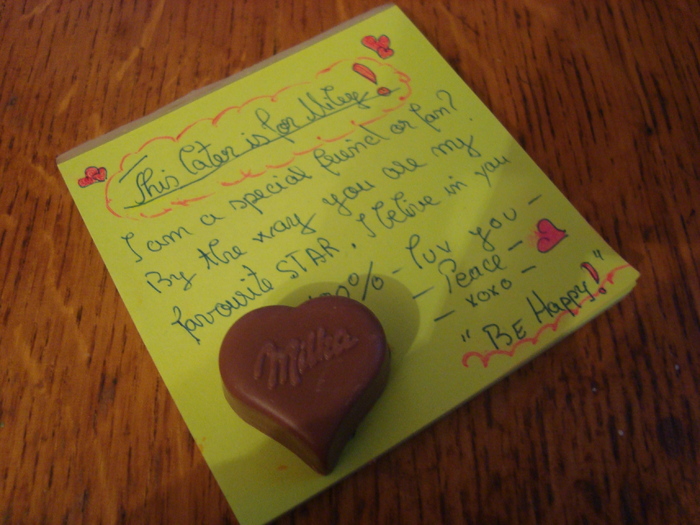 This Later is for Miley!
I am a special friend or fan?
By the way you are my
favourite STAR. I belive in you
100%
- luv you -
- Peace -
- xoxo -
"BE HAPPY!"
Milka